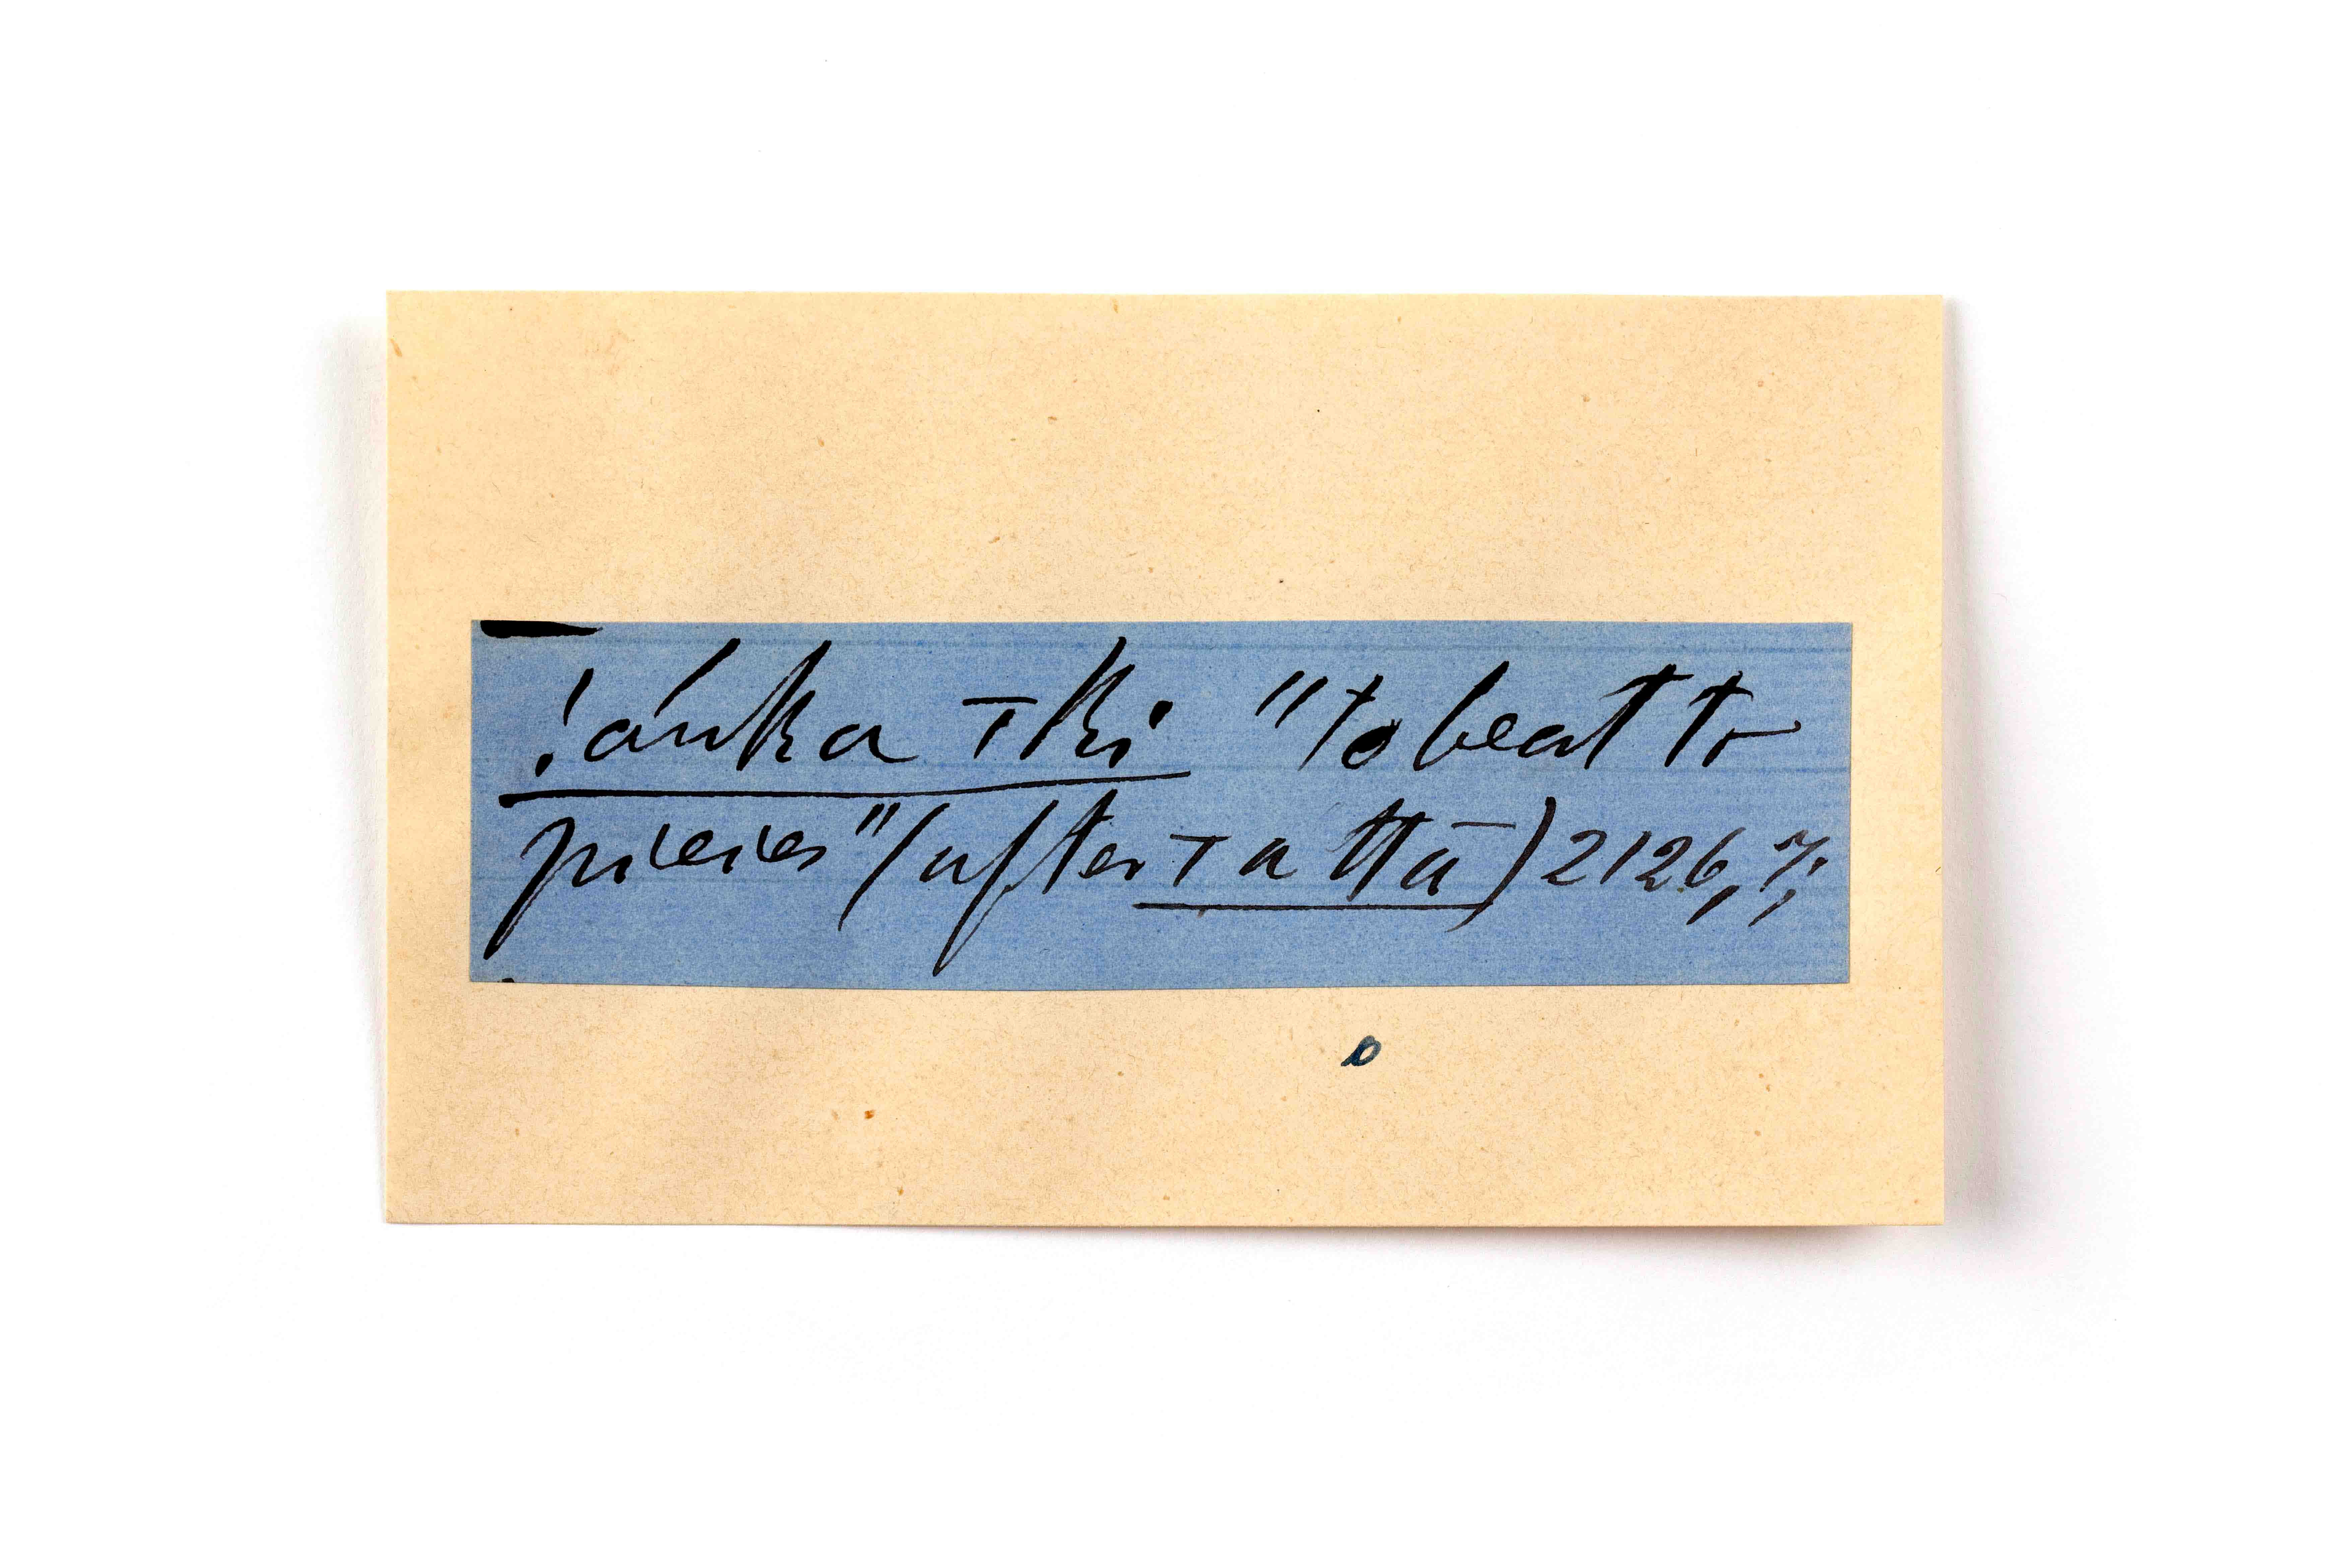 !áuka ⊤ki "to beat to
pieces" (after ⊤a ttā) 2126,7;
o